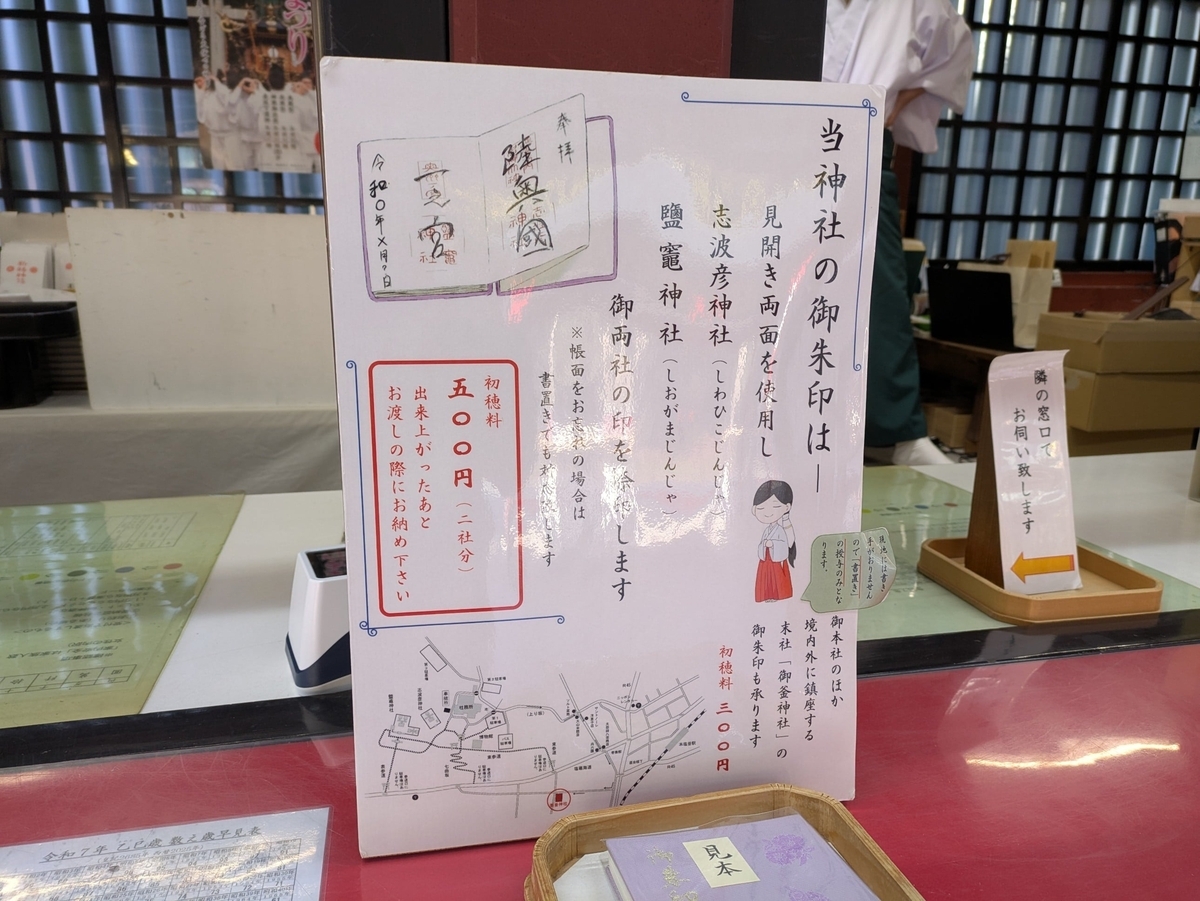 当神社の御朱印は―
見開き両面を使用し
志波彦神社（しわひこじんじゃ）
鹽竈神社（しおがまじんじゃ）
御両社の印を捺印します
※帳面をお忘れの場合は
書置きでも対応致します
奉拝
陸奥國
一宮
令和〇年×月〇日
初穂料
五〇〇円（二社分）
出来上がったあと
お渡しの際にお納め下さい
現地には書き
手がおりません
ので「書置き」
の授与のみとな
ります。
御本社のほか
境内外に鎮座する
末社「御釜神社」の
御朱印も承ります
初穂料 三〇〇円
隣の窓口で
お伺い致します
見本
令和7年 乙巳歳 数え歳早見表